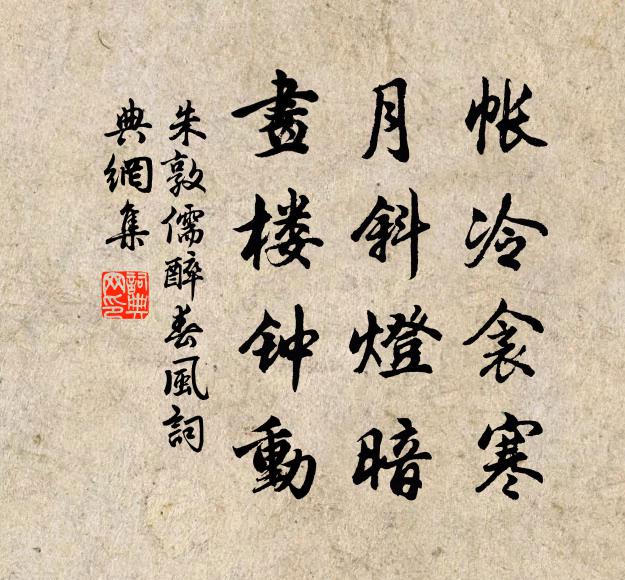 帐冷衾寒
月斜燈暗
畫楼钟動
朱敦儒醉春風詞
典網集
詞典网印